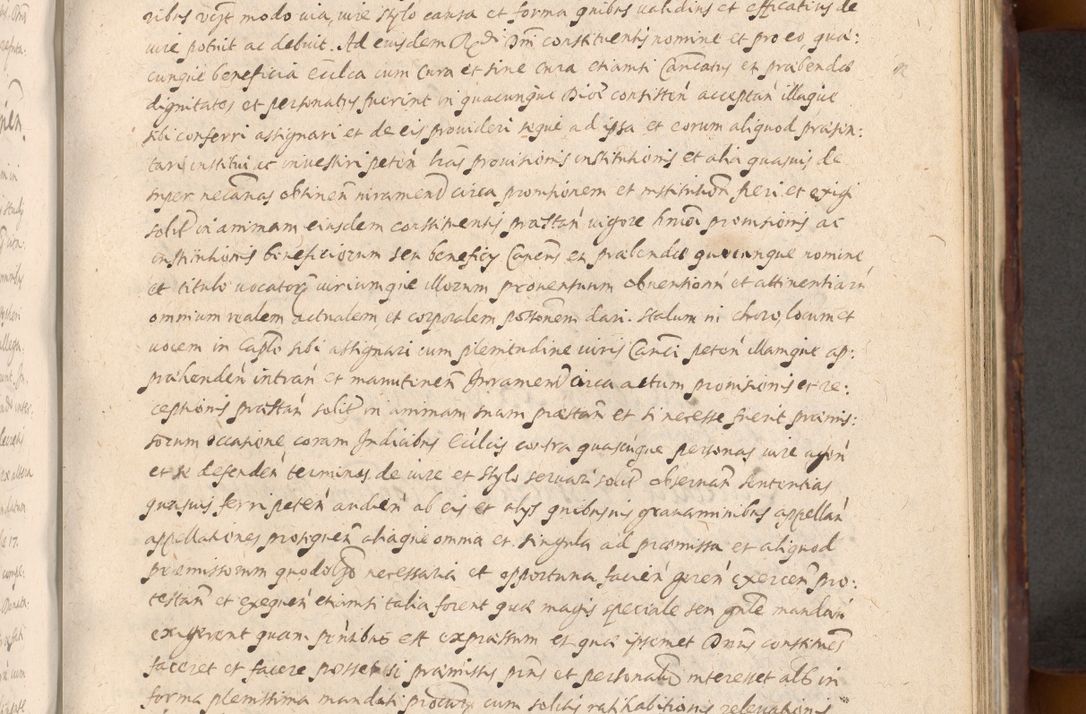 ribus vẽt modo via, vire stylo causa et forma quibus validius et efficatius de
vire potuit ac debuit. Ad eiusdem Rdi Dni constituentis nomine et pro eo quæ:
cunque beneficia Ecclca cum Cura et sine cura etiamsi Canicatus et præbendæ
dignitates et personatus fuerint in quacunque Dioe consisten acceptan illaque
sibi conferri assignari et de eis provideri seque ad ipsa et eorum aliquod præsen:
tari institui ac investiri peten lras provisionis institutionis et alia quasuis de
super necarias obtinen iurament circa provisionem et institution fieri et exigi
solit in animam eiusdem constituentis præstan vigore hmoi provisionis ac
institutionis beneficiorum seu beneficij Canens et præbendæ quocunque nomine
et titulo vocator iuriumque illorum proventuum obventionu et attinentiaru
omnium realem actualem et corporalem possonem dari. Stalum in choro, locum et
vocem in Caplo sibi assignari cum plenitudine iuris Canci peten illamque ap:
præhenden intran et manutenen Iurament circa actum provisionis et re:
ceptionis præstan solit in animam suam præstan et si necesse fuerit præmis:
sorum occasione coram Iudicibus Ecclcis contra quascuque personas iure agen
et se defenden terminos de iure et stylo servari solit observan sententias
quasuis ferri peten audien ab eis et alys quibusuis gravaminibus appellan
appellationes prosequen aliaque omnia et singula ad præmissa et aliquod
præmissorum quodolzo necessaria et opportuna facien geren exercen pro:
testan et exequen etiamsi talia forent quæ magis speciale seu gnle mandan
exigerent quam pntibus est expressum et quæ ipsemet Dnus constitues
faceret et facere posset si præmissis pns et personalr interesset alb in
forma plenissima mandati procury cum solitis ratihabitionis relevationis